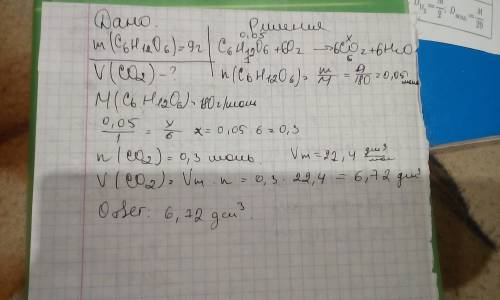 Дано:
Решение
m(C6H12O6)=9г
0,05 x
C6H12O6+6O2 → 6CO2+6H2O
1 6
V(CO2)-?
n(C6H12O6)= m/M = 9/180 =0,05 моль
M(C6H12O6)=180г/моль
0,05/1 = x/6 x = 0,05·6 = 0,3
n(CO2) = 0,3 моль Vm=22,4 дм³/моль
V(CO2)= Vm · n = 0,3 · 22,4 = 6,72 дм³
Ответ: 6,72 дм³